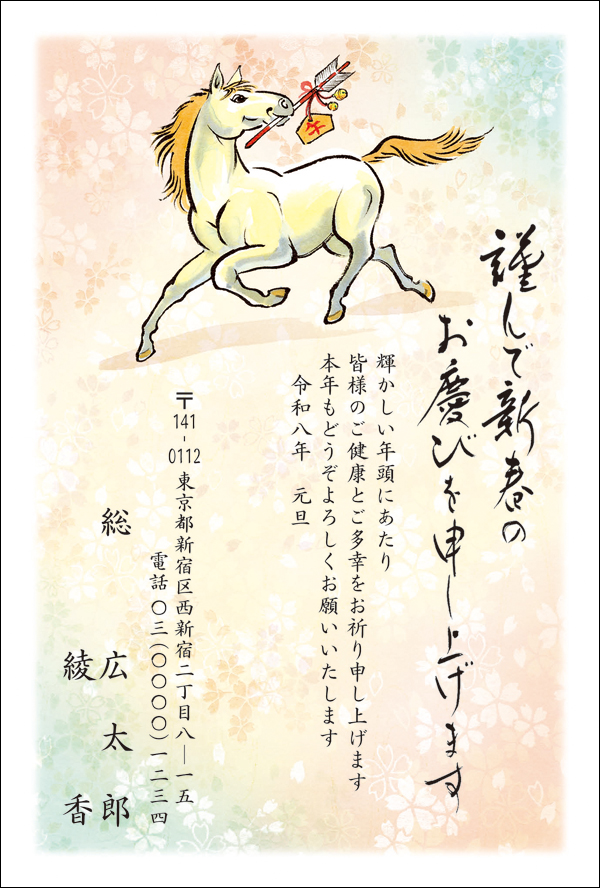 午
謹んで新春の
お慶びを申し上げます
輝かしい年頭にあたり
皆様のご健康とご多幸をお祈り申し上げます
本年もどうぞよろしくお願いいたします
令和八年　元旦
〒141-0112 東京都新宿区西新宿二丁目八―一五
電話 〇三(〇〇〇〇)一二三四
総　広太郎
綾香